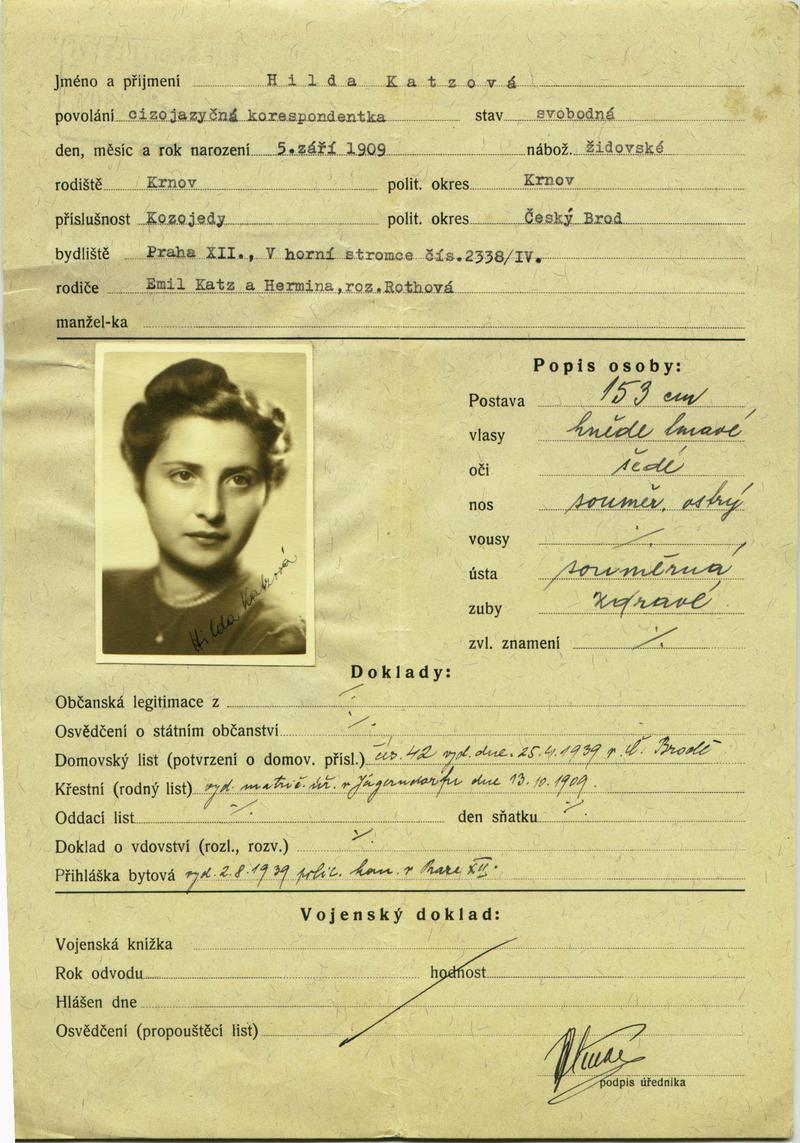 Jméno a příjmení Hilda Katzová
povolání cizojazyčná korespondentka stav svobodná
den, měsíc a rok narození 5.září 1909 nábož. židovské
rodiště Krnov polit. okres Krnov
příslušnost Kozojedy polit. okres Český Brod
bydliště Praha XII., V horní stromce čís.2338/IV.
rodiče Emil Katz a Hermina,roz.Rothová
manžel-ka
Popis osoby:
Postava 153 cm
vlasy hnědé tmavé
oči šedé
nos souměr. ostrý
vousy ./.
ústa souměrná
zuby zdravé
zvl. znamení ./.
Hilda Katzová
Doklady:
Občanská legitimace z ./.
Osvědčení o státním občanství ./.
Domovský list (potvrzení o domov. přísl.) čís. 42 vyd. dne. 25.4.1939 v Č. Brodě
Křestní (rodný list) vyd. matrič. úř. v Jägerndorfu dne 13.10.1909.
Oddací list ./. den sňatku ./.
Doklad o vdovství (rozl., rozv.) ./.
Přihláška bytová vyd. 2.8.1939 polic. kom. v Praze XII.
Vojenský doklad:
Vojenská knížka
Rok odvodu hodnost
Hlášen dne
Osvědčení (propouštěcí list)
podpis úředníka